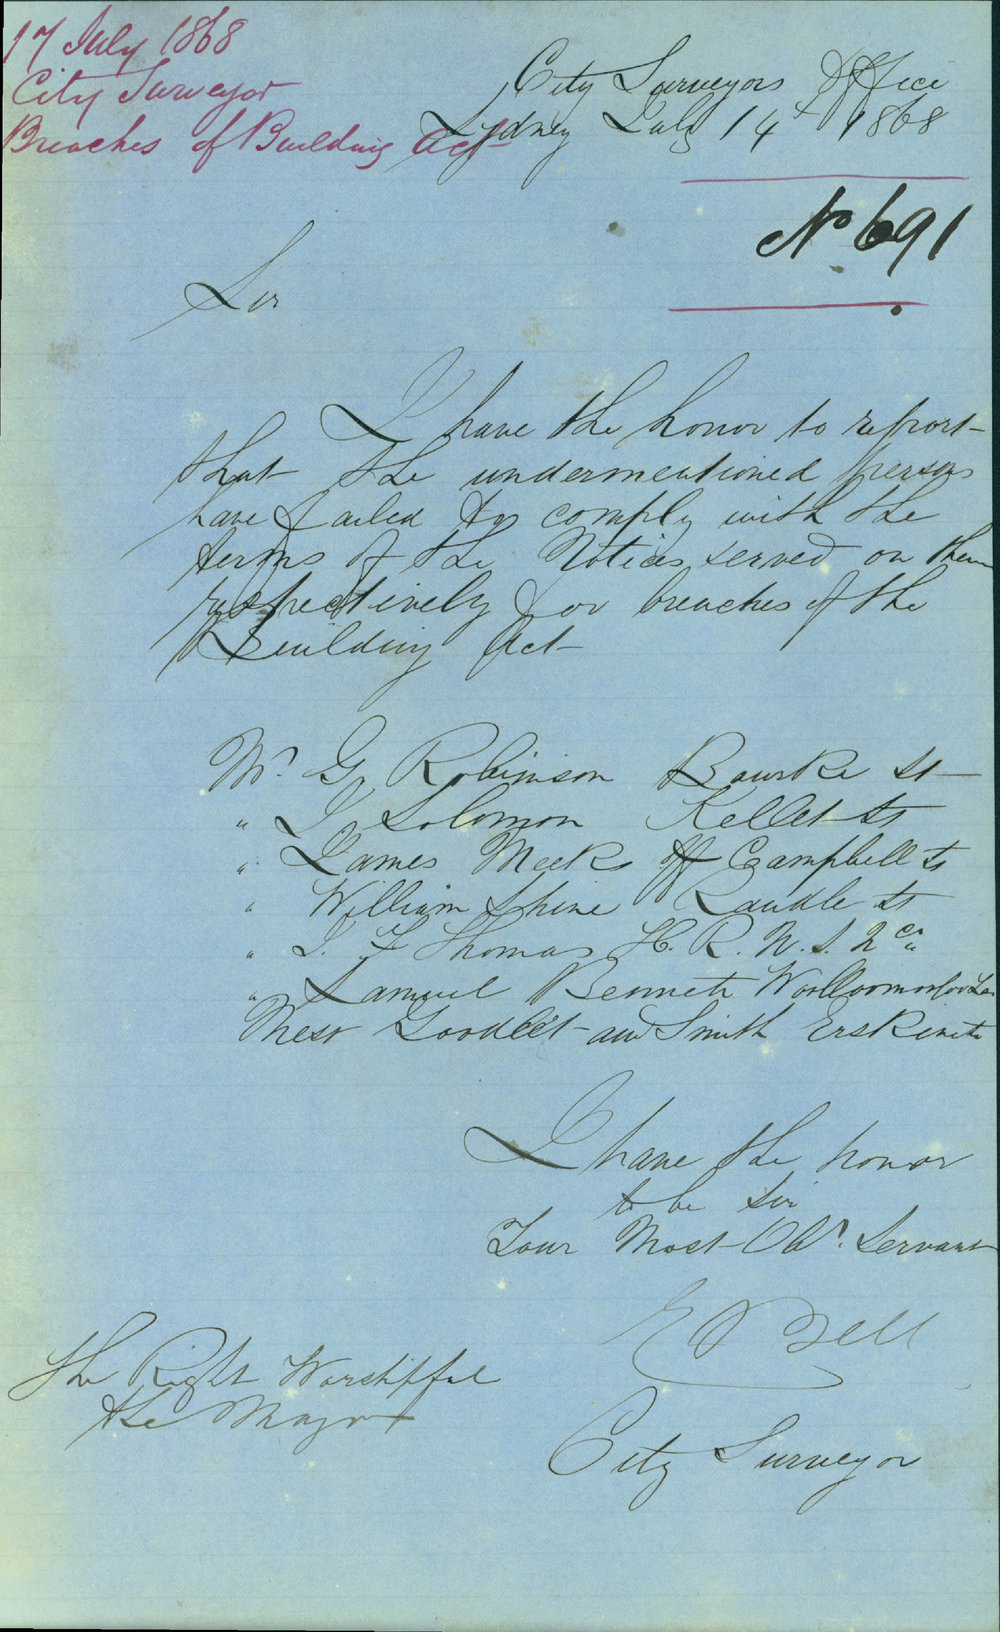 17 July 1868
City Surveyor
Breaches of Building Act
City Surveyors Office
Sydney July 14th 1868
No 691
Sir
I have the honor to report
that the undermentioned persons
have failed to comply with the
terms of the Notices served on them
respectively for breaches of the
Building Act
Mr. G. Robinson Bourke st
" J Solomon Kellet st
" James Meeks off Campbell st
" William Shine Randle st
" J. F Thomas H. R. N. S. N Co.
" Samuel Bennett Woolloomooloo
Messr Goodlet and Smith Erskine st
I have the honor
to be Sir
Your Most Obt. Servant
E Bell
City Surveyor
The Right Worshipful
the Mayor